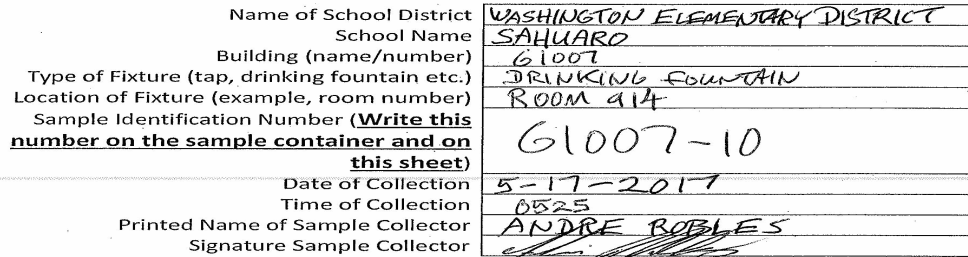 Name of School District WASHINGTON ELEMENTARY DISTRICT
School Name SAHUARO
Building (name/number) 61007
Type of Fixture (tap, drinking fountain etc.) DRINKING FOUNTAIN
Location of Fixture (example, room number) ROOM 914
Sample Identification Number (Write this
number on the sample container and on
this sheet) 61007-10
Date of Collection 5-17-2017
Time of Collection 0525
Printed Name of Sample Collector ANDRE ROBLES
Signature Sample Collector